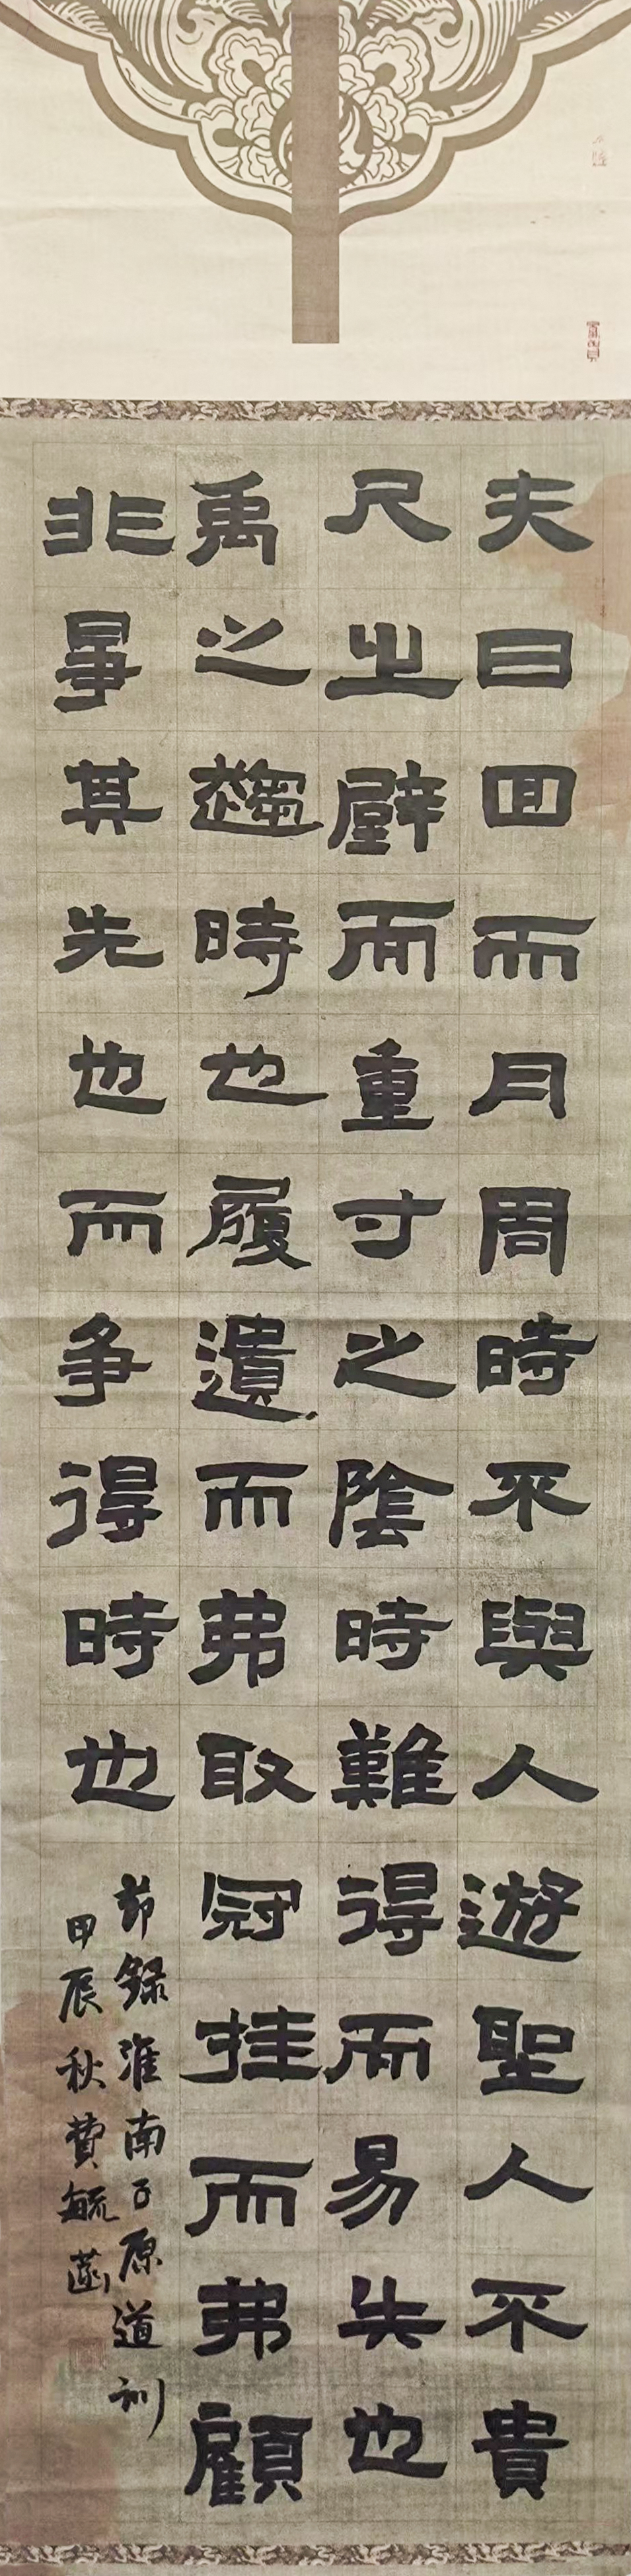 夫日回而月周時不與人遊聖人不貴
尺之璧而重寸之陰時難得而易失也
禹之趨時也履遺而弗取冠挂而弗顧
非爭其先也而争得時也
節錄淮南子原道訓
甲辰秋費毓菡